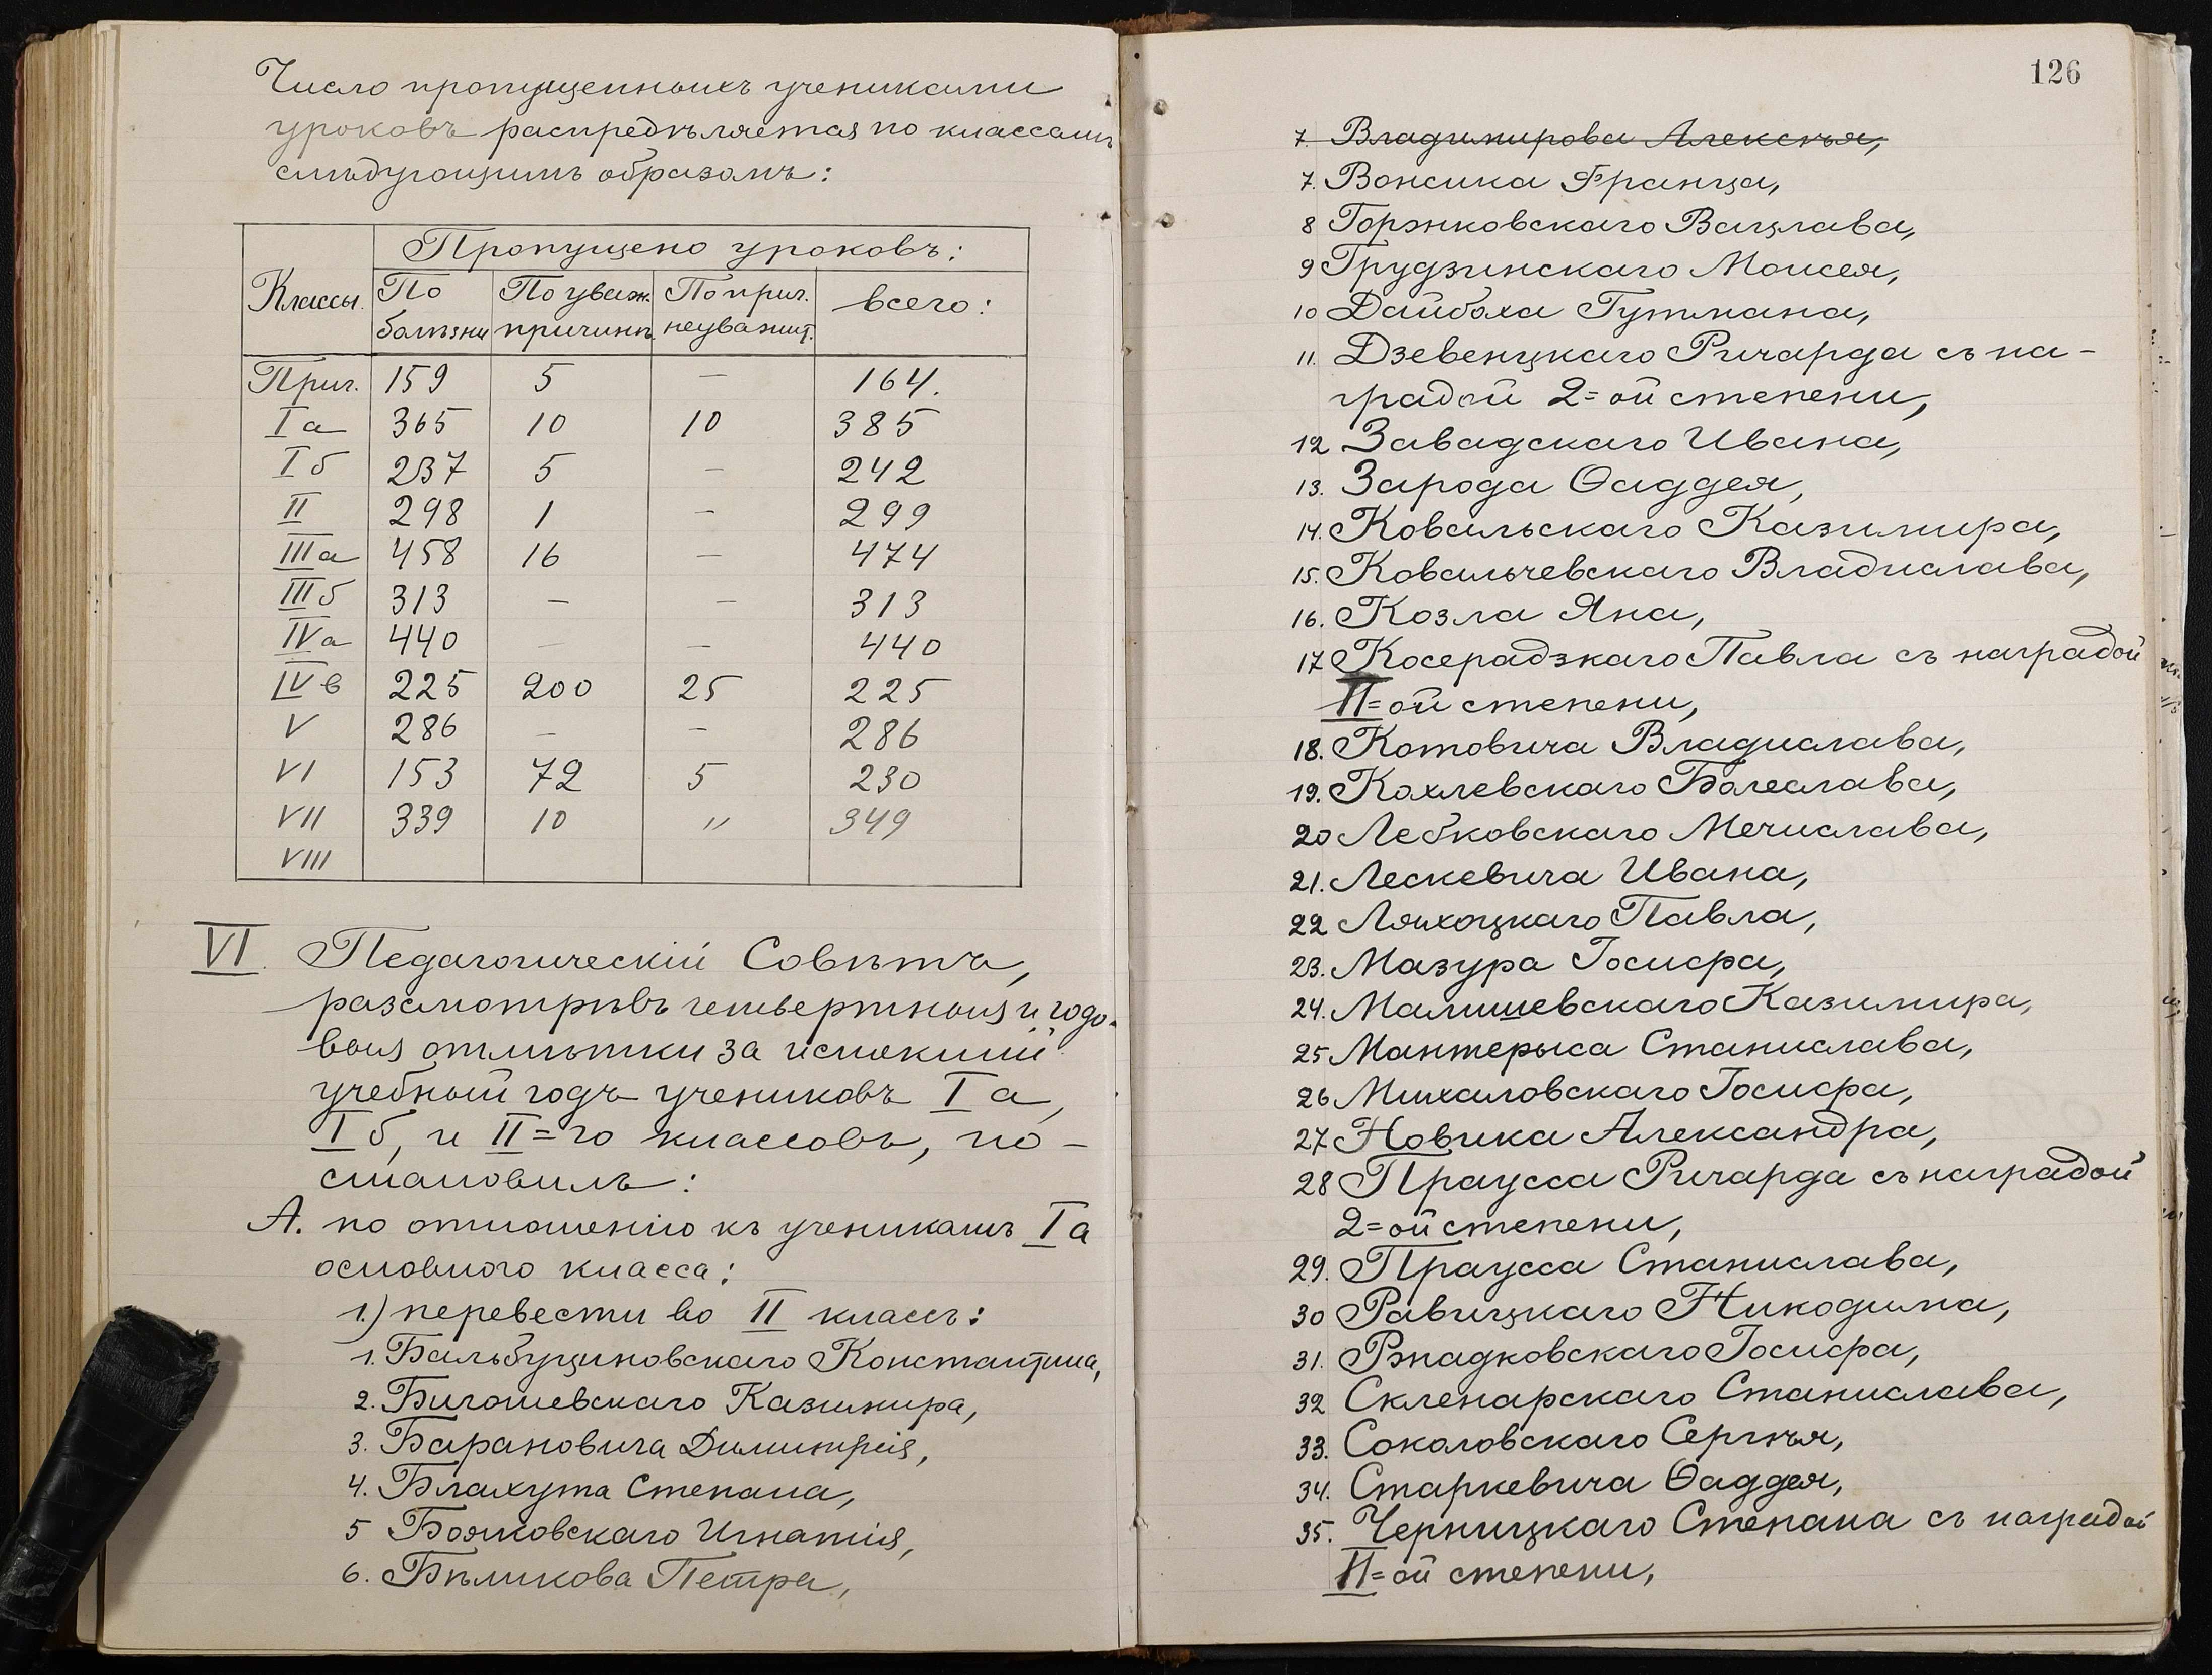 Число пропущенныхъ учениками
уроковъ распредѣляется по классамъ
слѣдующимъ образомъ:
Классы.
Пропущено уроковъ:
По болѣзни
По уваж. причинѣ
По прич. неуважит.
всего:
Приг. 159 5 — 164.
Iа 365 10 10 385
Iб 237 5 — 242
II 298 1 — 299
IIIа 458 16 — 474
IIIб 313 — — 313
IVа 440 — — 440
IVв 225 200 25 225
V 286 — — 286
VI 153 72 5 230
VII 339 10 " 349
VIII
VI. Педагогическій Совѣтъ,
разсмотрѣвъ четвертныя и годо-
выя отмѣтки за истекшій
учебный годъ учениковъ Iа,
Iб, и II=го классовъ, по-
становилъ:
А. по отношенію къ ученикамъ Iа
основного класса:
1.) перевести во II классъ:
1. Бальбуциновскаго Константина,
2. Бигошевскаго Казимира,
3. Барановича Димитрія,
4. Блахута Степана,
5 Бояковскаго Игнатія,
6. Бѣликова Петра,
126
7. Владимирова Алексѣя,
7. Вонсика Франца,
8 Горэнковскаго Вацлава,
9 Грудзинскаго Моисея,
10 Дайбоха Гутмана,
11. Дзевенцкаго Ричарда съ на-
градой 2=ой степени,
12 Завадскаго Ивана,
13. Зарода Ѳаддея,
14. Ковальскаго Казимира,
15. Ковальчевскаго Владислава,
16. Козла Яна,
17 Косерадзкаго Павла съ наградой
II=ой степени,
18. Котовича Владислава,
19. Кохлевскаго Болеслава,
20 Лебковскаго Мечислава,
21. Лескевича Ивана,
22 Ляхоцкаго Павла,
23. Мазура Іосифа,
24. Малишевскаго Казимира,
25 Мантерыса Станислава,
26 Михаловскаго Іосифа,
27 Новика Александра,
28 Праусса Ричарда съ наградой
2=ой степени,
29. Праусса Станислава,
30 Равицкаго Никодима,
31. Рэпадковскаго Іосифа,
32 Скленарскаго Станислава,
33. Соколовскаго Сергѣя,
34. Старкевича Ѳаддея,
35. Черницкаго Степана съ наградой
II=ой степени,